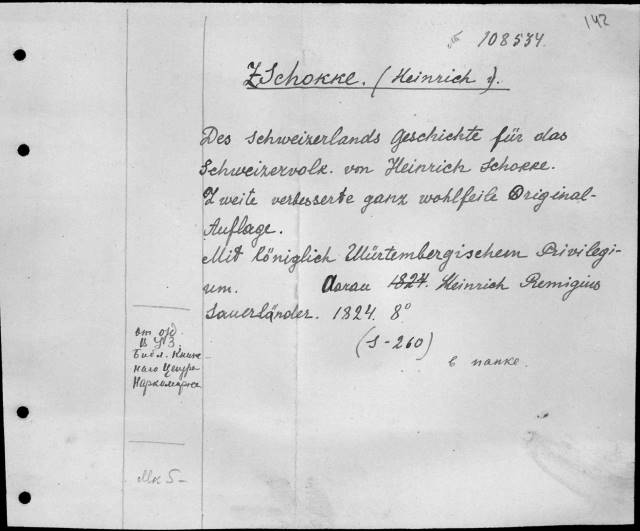 142
№ 108534.
ZSchokke. (Heinrich).
Des schweizerlands Geschichte für das
Schweizervolk. von Heinrich Schokke.
Zweite verbesserte ganz wohlfeile Original-
Auflage.
Mit königlich Würtembergischem Privilegi-
um. Aarau 1824. Heinrich Remigius
Sauerländer. 1824. 8°
(S-260)
в папке.
от
Библ. Книж-
наго Центра
Наркомпроса
5-